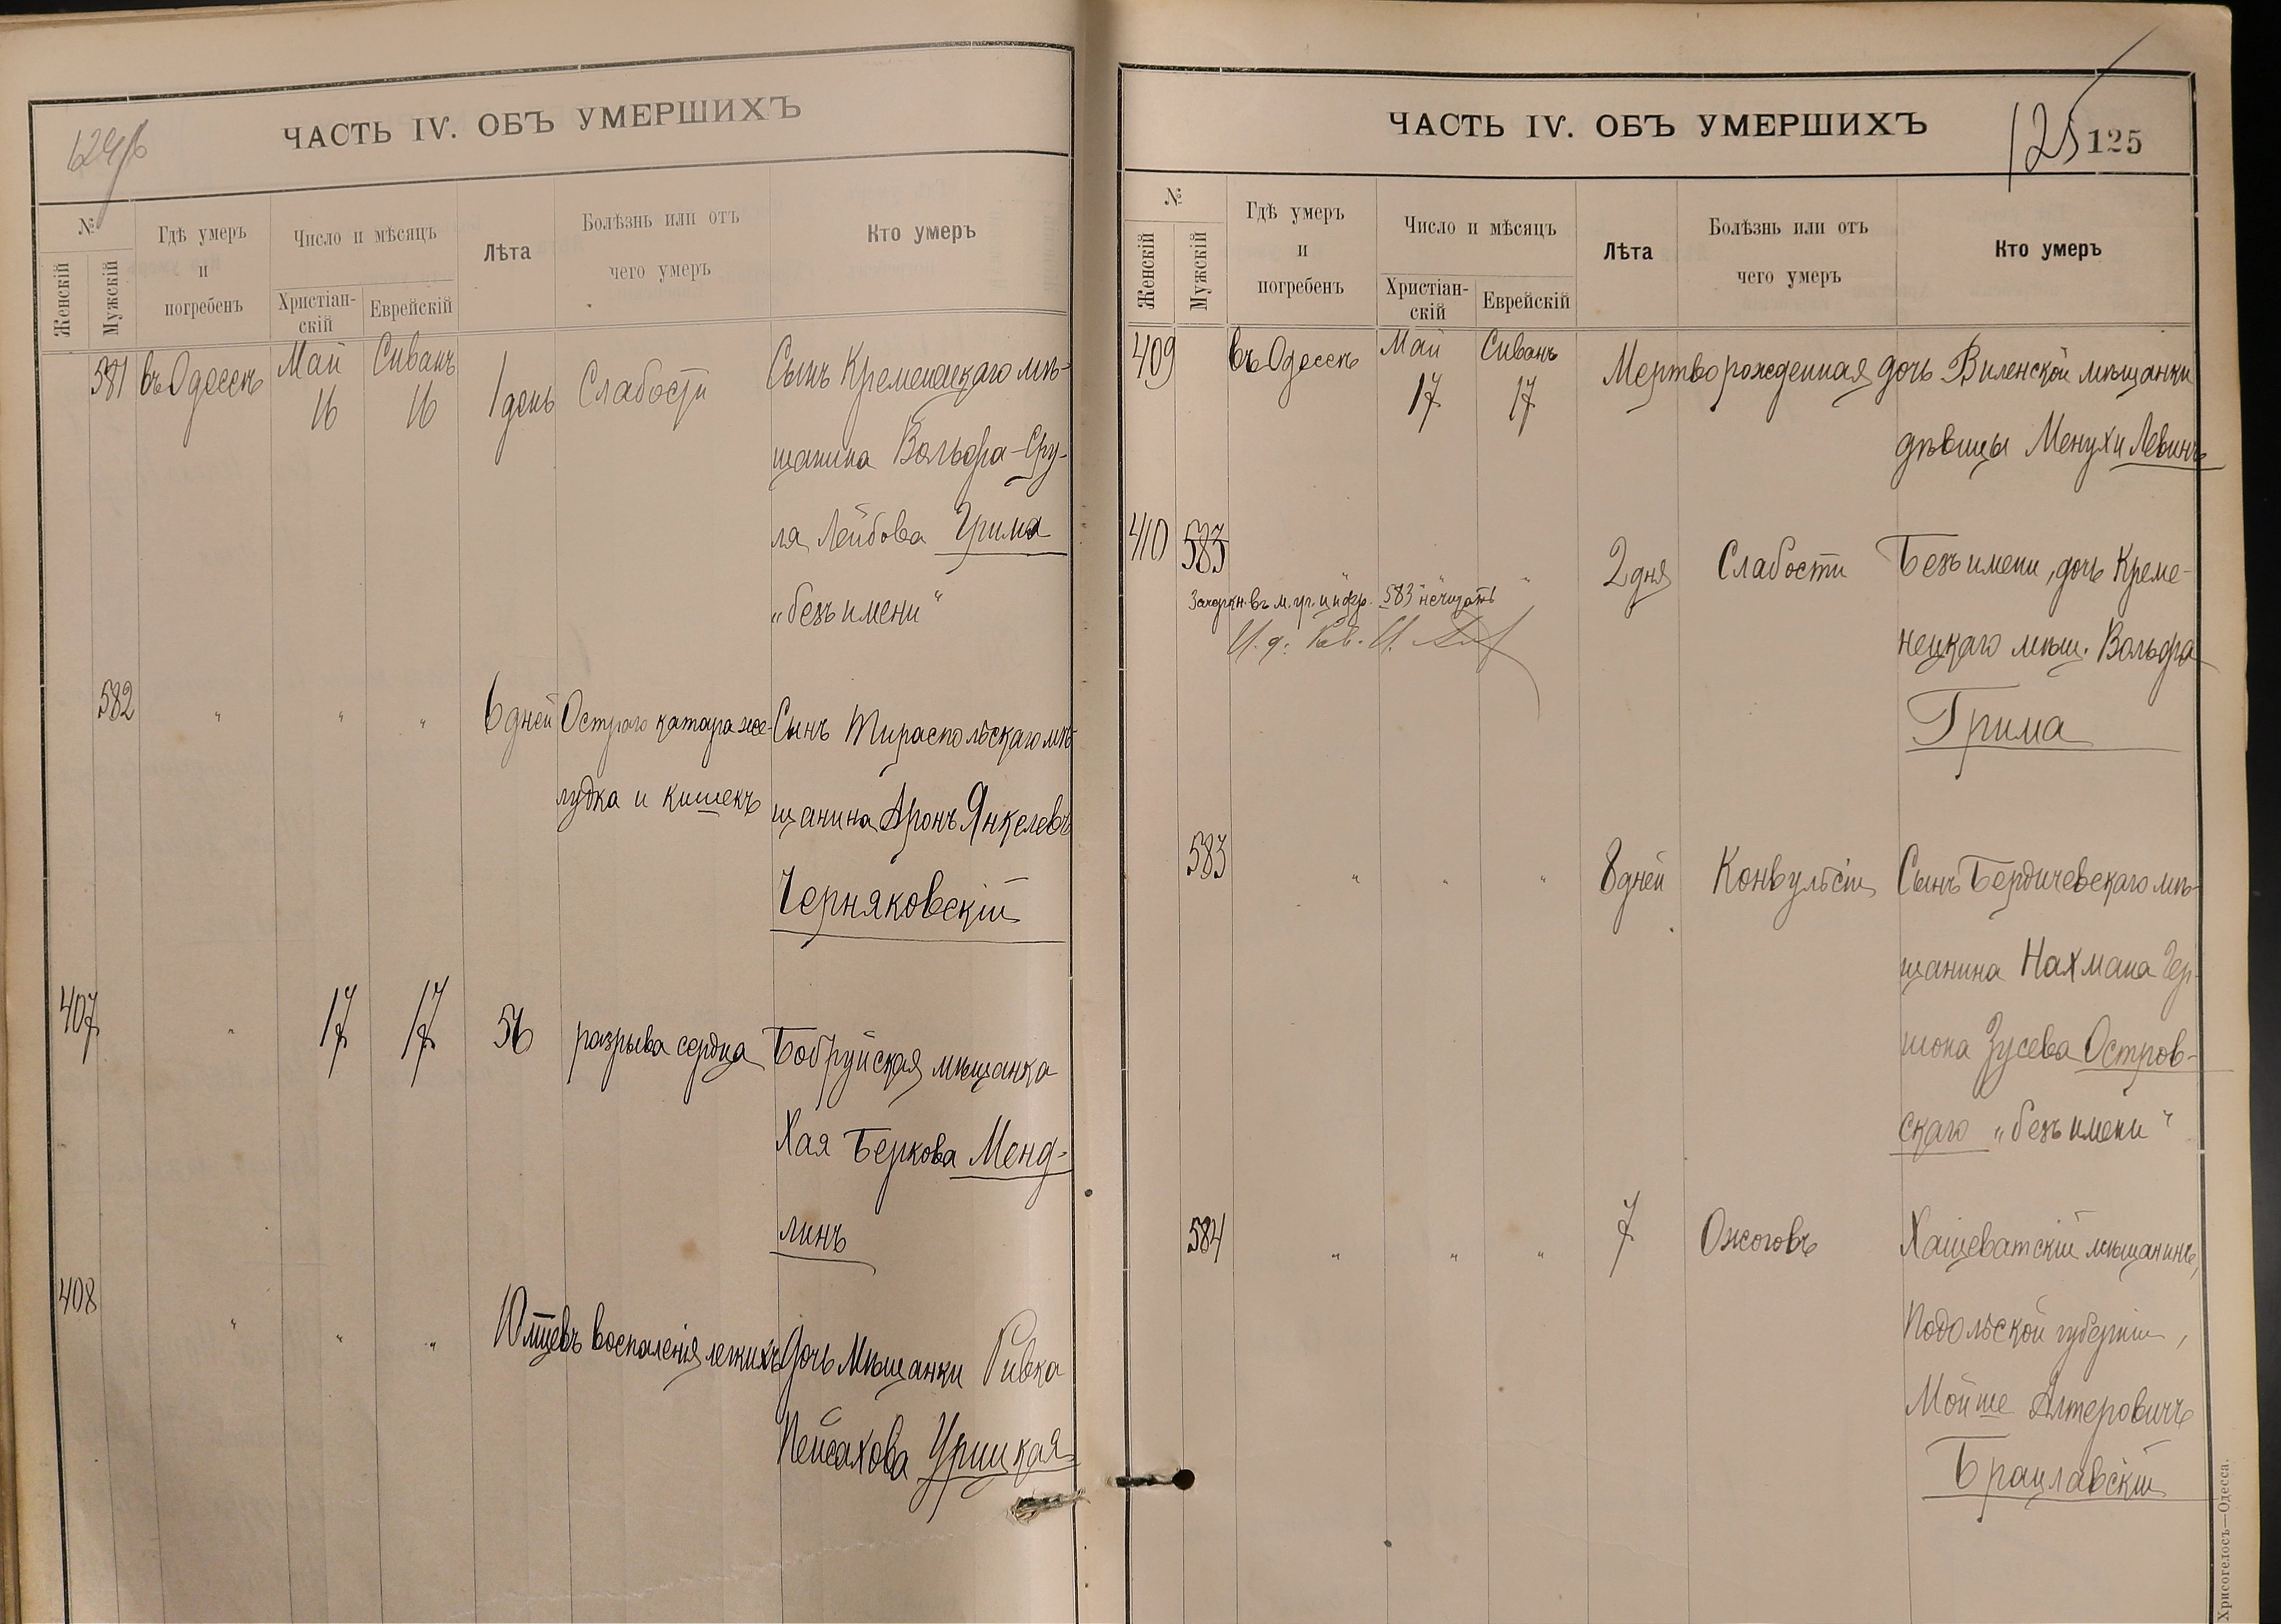 124об
ЧАСТЬ IV. ОБЪ УМЕРШИХЪ
№
Женскій
Мужскій
Гдѣ умеръ
и
погребенъ
Число и мѣсяцъ
Христіан-
скій
Еврейскій
Лѣта
Болѣзнь или отъ
чего умеръ
Кто умеръ
581 въ Одессѣ Май 16 Сиванъ 16 1 день Слабости Сынъ Кременецкаго мѣ-
щанина Вольфа-Сру-
ля Лейбова Грима
„безъ имени“
582 " " " 6 дней Остраго катара же- Сынъ Тираспольскаго мѣ-
лудка и кишекъ щанина Аронъ Янкелевъ
Черняковскій
407 " 17 17 56 разрыва сердца Бобруйская мѣщанка
Хая Беркова Менд-
линъ
408 " " " 10 мѣцевъ воспаленія легкихъ Дочь мѣщанки Ривка
Пейсахова Урицкая
ЧАСТЬ IV. ОБЪ УМЕРШИХЪ
125 125
№
Женскій
Мужскій
Гдѣ умеръ
и
погребенъ
Число и мѣсяцъ
Христіан-
скій
Еврейскій
Лѣта
Болѣзнь или отъ
чего умеръ
Кто умеръ
409 въ Одессѣ Май 17 Сиванъ 17 Мертворожденная дочь Виленской мѣщанки
дѣвицы Менухи Левинъ
410 583 " " " 2 дня Слабости Безъ имени, дочь Креме-
Зачеркн. въ м. гр. цифр. 583 не читать
И. д. Рав.
нецкаго мѣщ. Вольфа
Грима
583 " " " 8 дней Конвульсіи Сынъ Бердичевскаго мѣ-
щанина Нахмана Гер-
шона Зусева Остров-
скаго „безъ имени“
584 " " " 7 Ожоговъ Хащеватскій мѣщанинъ,
Подольской губерніи,
Мойше Алтеровичъ
Брацлавскій
Хрисогелосъ—Одесса.